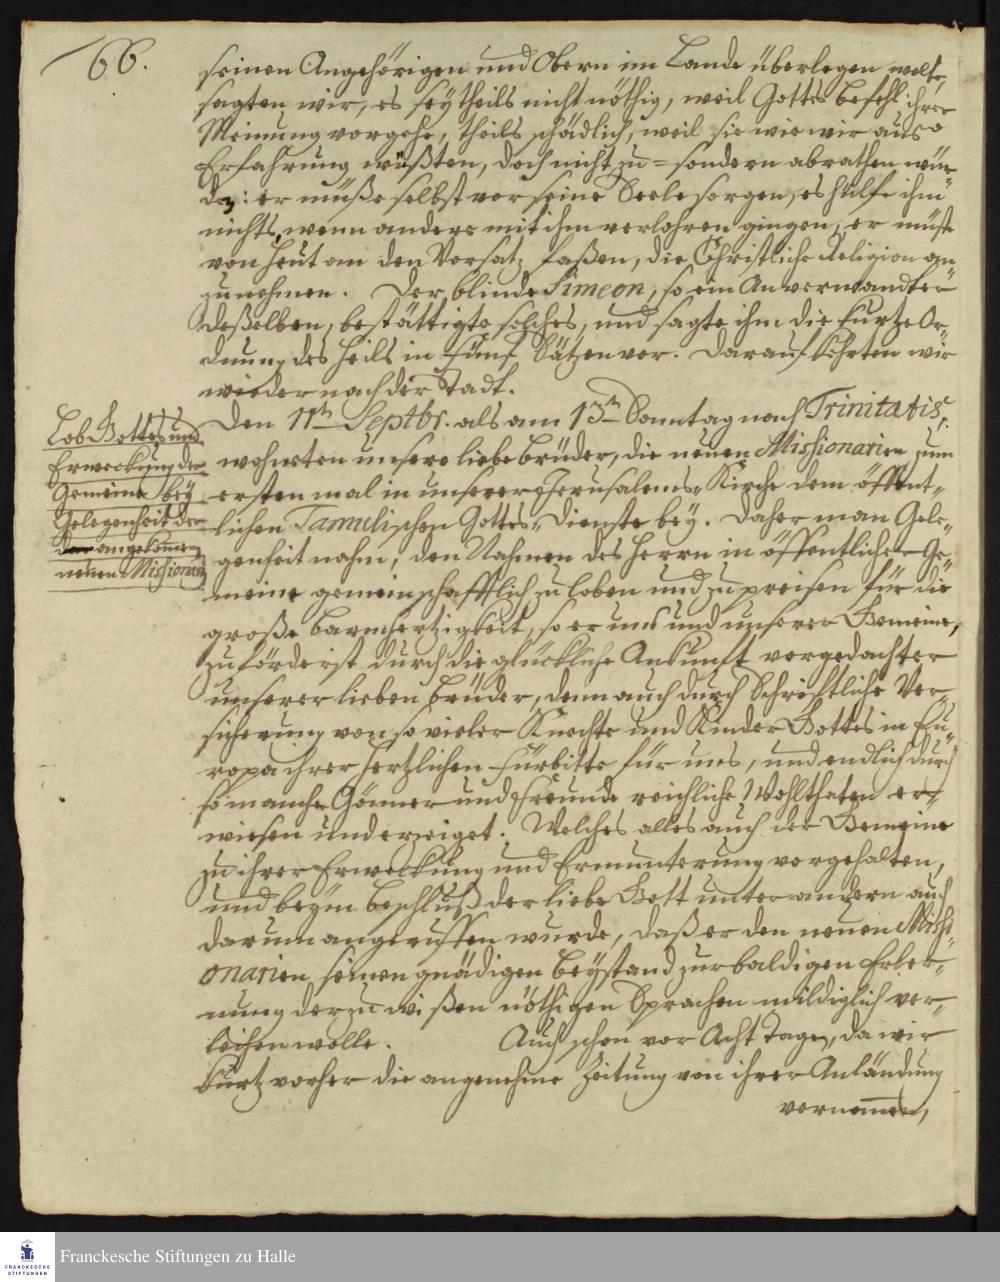 66.
seinen Angehörigen und Obern im Lande überlegen wolte,
sagten wir, es sey theils nicht nöthig, weil Gottes Befehl ihrer
Meinung vorgehe, theils schädlich, weil sie wie wir aus
Erfahrung wüßten, doch nicht zu= sondern abrathen wür
den: er müße selbst vor seine Seele sorgen, es hülfe ihm
nichts, wenn andere mit ihm verlohren gingen, er müste
von heut an den Vorsatz faßen, die Christliche Religion an
zunehmen. Der blinde Simeon, so ein Anverwandter
deßelben, bestättigte solches, und sagte ihm die kurtze Or-
dnung des Heils in fünf Sätzen vor. Darauf kehrten wir
wieder nach der Stadt.
Lob Gottes und
Erweckung der
Gemeine bey
Gelegenheit der
angekomenen
neuen Missionarien
Den 11ten Septbr. als am 13ten Sonntag nach Trinitatis,
wohneten unsere liebe Brüder, die neuen Missionarien zum
ersten mal in unserer Jerusalems-Kirche dem öffent-
lichen Tamulischen Gottes-Dienste bey. Daher man Gele-
genheit nahm, den Nahmen des Herrn in öffentlicher Ge-
meine gemeinschafftlich zu loben und zu preisen für die
große Barmhertzigkeit, so er uns und unserer Gemeine,
zuförderist durch die glückliche Ankunft vorgedachter
unserer lieben Brüder, denn auch durch Schrifftliche Ver-
sicherung von so vieler Knechte und Kinder Gottes in Eu-
ropa ihrer hertzlichen Fürbitte für uns, und endlich durch
so mancher Gönner und Freunde reichliche Wohlthaten er-
wiesen und erzeiget. Welches alles auch der Gemeine
zu ihrer Erweckung und Ermunterung vorgehalten,
und beym Beschluß der liebe Gott unter andern auch
darum angeruffen wurde, daß er den neuen Missi-
onarien seinen gnädigen Beystand zur baldigen Erler-
nung der zu wißen nöthigen Sprachen mildiglich ver-
leihen wolle. Auch schon vor Acht Tagen, da wir
kurtz vorher die angenehme Zeitung von ihrer Anländung
vernomen,
FRANCKESCHE
STIFTUNGEN
Franckesche Stiftungen zu Halle